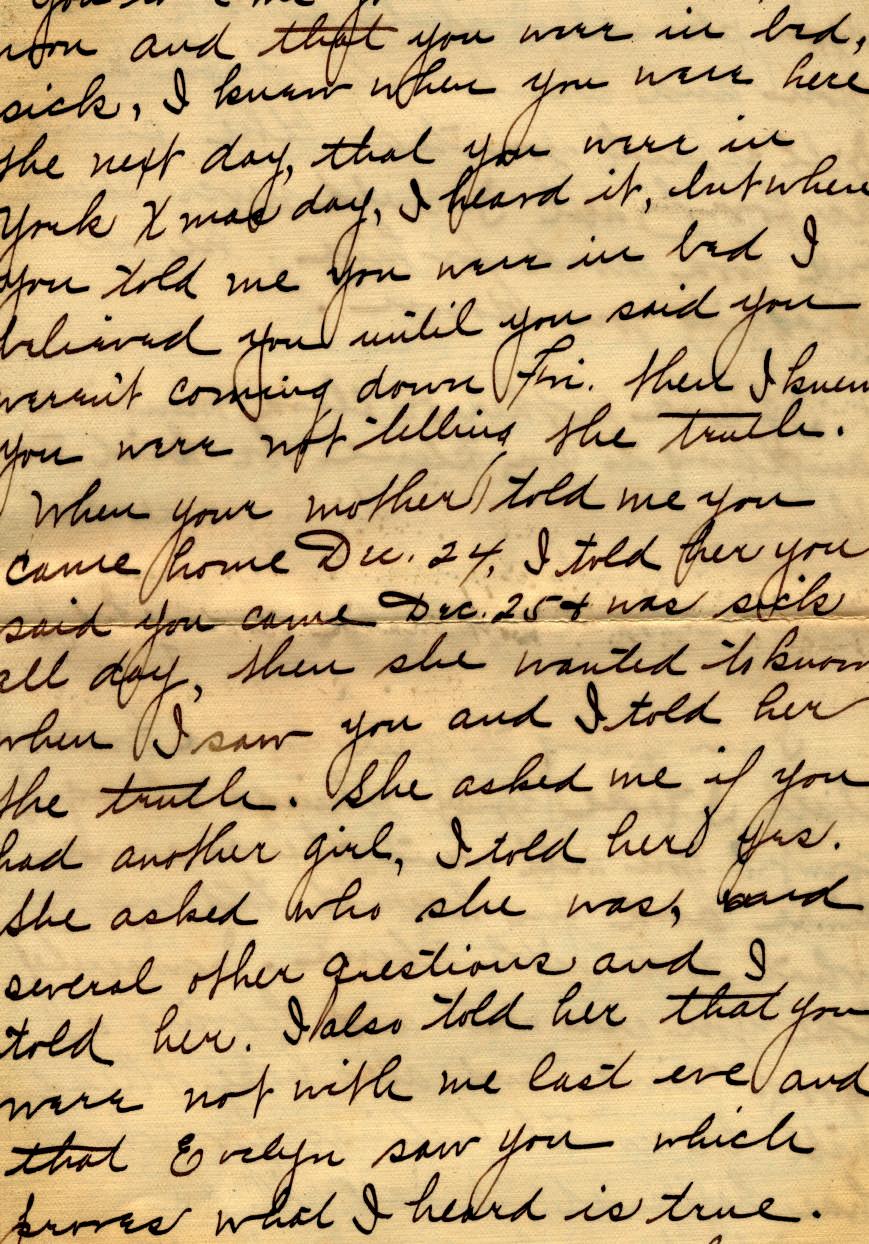 you
and that you were in bed,
sick, I knew when you were here
the next day, that you were in
York Xmas day, I heard it, but when
you told me you were in bed I
believed you until you said you
weren't coming down Fri. then I knew
you were not telling the truth.
When your mother told me you
came home Dec. 24, I told her you
said you came Dec. 25 & was sick
all day, then she wanted to know
when I saw you and I told her
the truth. She asked me if you
had another girl, I told her yes.
She asked who she was, and
several other questions and I
told her. I also told her that you
were not with me last eve and
that Evelyn saw you which
proves what I heard is true.